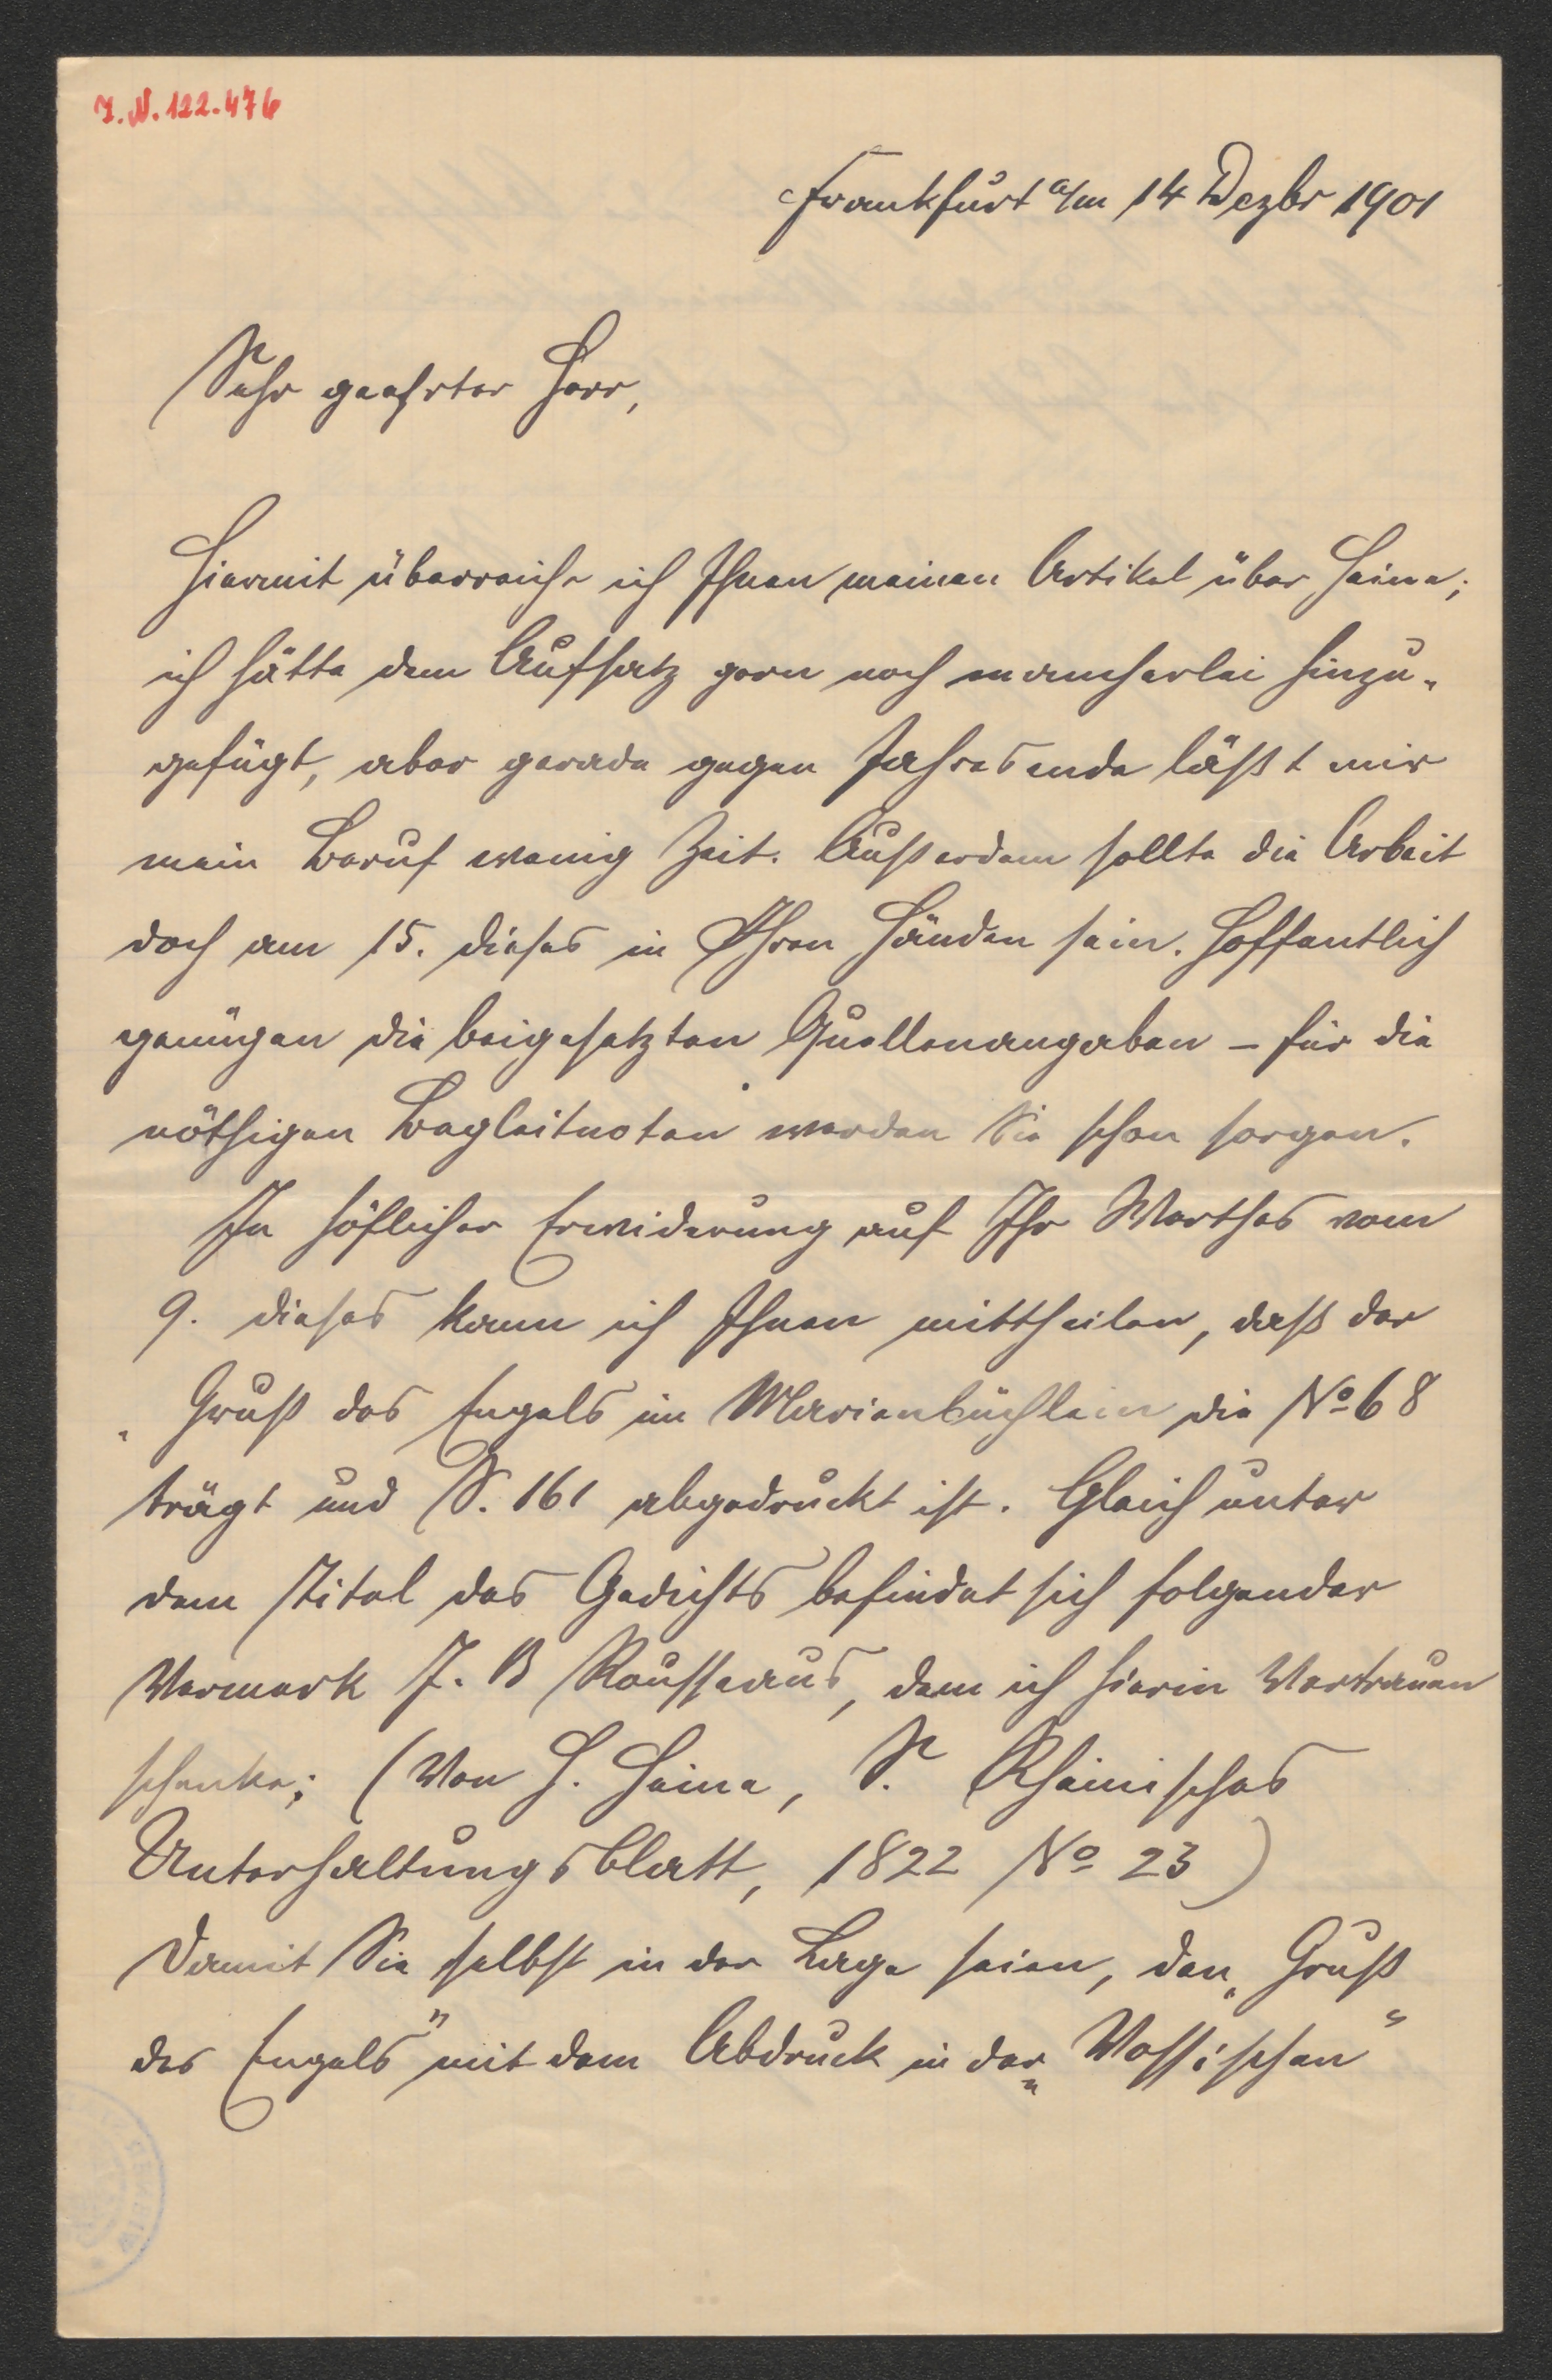 I.N. 122.476
Frankfurt a/m 14 Dezbr 1901
Sehr geehrter Herr,
Hiermit überreiche ich Ihnen meinen Artikel über Heine;
ich hätte dem Aufsatz gern noch mancherlei hinzu-
gefügt, aber gerade gegen Jahresende läßt mir
mein Beruf wenig Zeit. Außerdem sollte die Arbeit
doch am 15. dieses in Ihren Händen sein. Hoffentlich
genügen die beigesetzten Quellenangaben – für die
nöthigen Begleitnoten werden Sie schon sorgen.
In höflicher Erwiderung auf Ihr Werthes vom
9. dieses kann ich Ihnen mittheilen, daß der
„Gruß des Engels im Marienbüchlein die No 68
trägt und S. 161 abgedruckt ist. Gleich unter
dem Titel des Gedichts befindet sich folgender
Vermerk J. B Rousseaus, dem ich hierin Vertrauen
schenke; (Von H. Heine, S. Rheinisches
Unterhaltungsblatt, 1822 No 23)
Damit Sie selbst in der Lage seien, den „Gruß
des Engels" mit dem Abdruck in der „Vossischen"